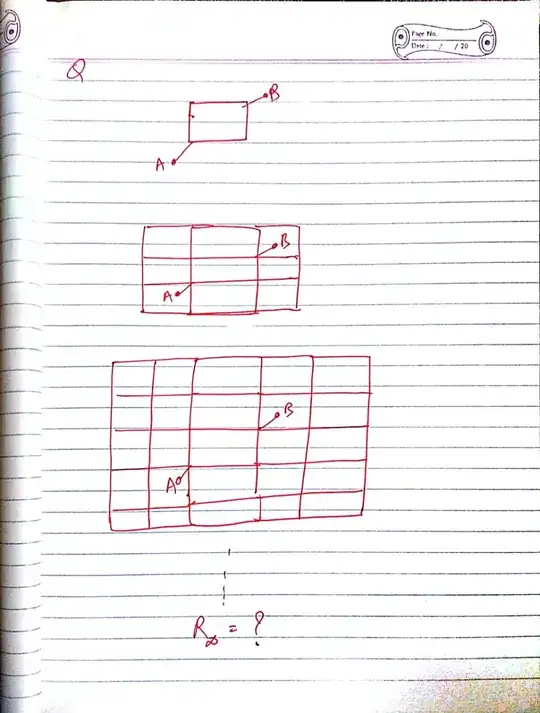 Page No.
Date : / / 20
Q
B
A
B
A
B
A
R∞ = ?